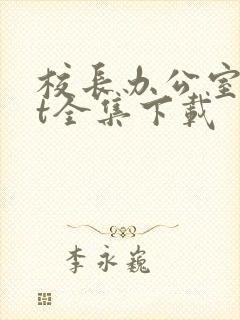 校长办公室
t全集下载
李永巍